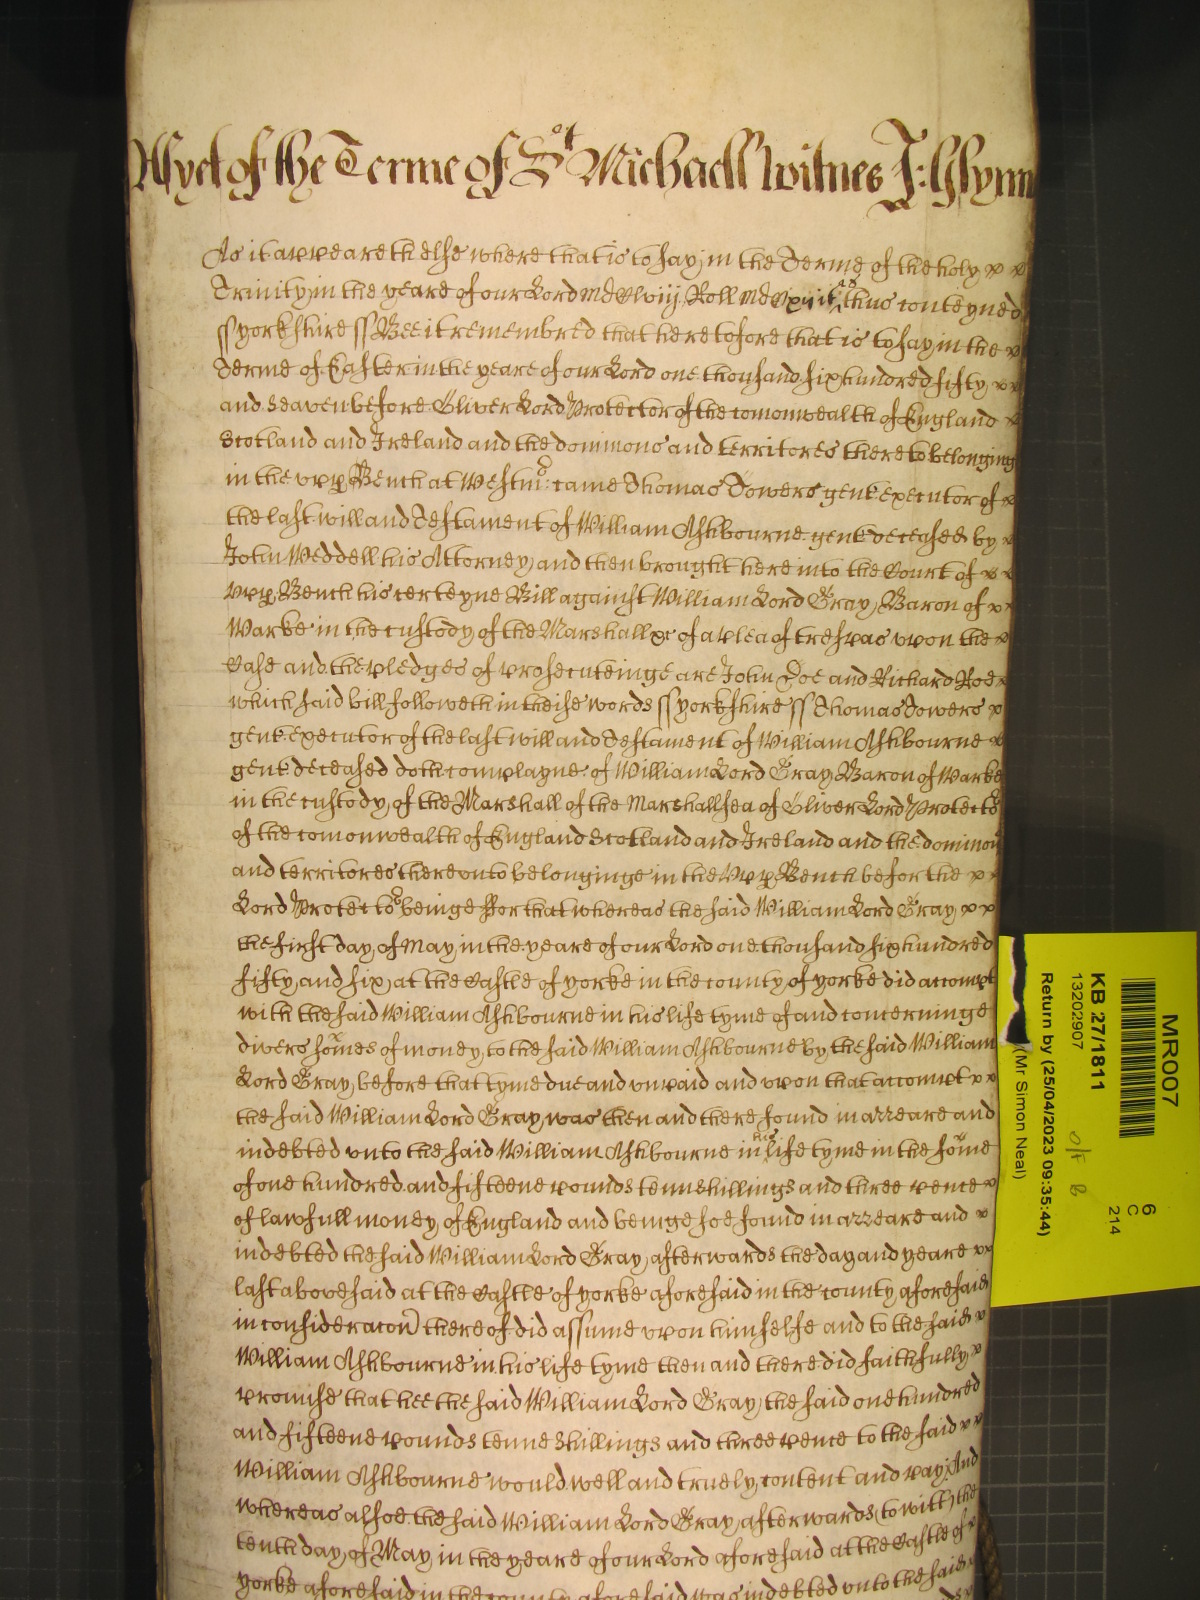 Yet of the Terme of St Michaell Witnes J: Glynn
As it appeareth else where that is to say, in the Terme of the holy x x
Trinity, in the yeare of our Lord MDClvij. Roll thus conteyned
ss yorkshire ss Bee it remembred that heretofore that is to say in the x
Terme of Easter in the yeare of our Lord one thousand six hundred fifty x x
and seaven before Oliver Lord Protector of the comonwealth of England x
Scotland and Ireland and the dominions and territores thereto belonging
in the vpp Bench at Westmr: came Thomas Towers gent executor of x
the last will and Testament of William Ashbourne gent deceased by x
John Weddell his Attorney, and then brought here into the Court of x x
vpp Bench his certeyne Bill against William Lord Gray, Baron of x
Warke in the custody of the Marshall &c of a plea of trespas vpon the x
Case and the pledges of prosecuteinge are John Doe and Richard Roe x
which said bill followeth in theise words ss yorkshire ss Thomas Towers x
gent executor of the last will and Testament of William Ashbourne x
gent deceased doth complayne of William Lord Gray, Baron of Warke
in the custody, of the Marshall of the Marshallsea of Oliver Lord Protector
of the comonwealth of England Scotland and Ireland and the dominions
and territores therevnto belonginge in the Vpp Bench befor the x x
Lord Protector beinge ffor that whereas the said William Lord Gray x x
the first day, of May in the yeare of our Lord one thousand six hundred
fifty, and six, at the Castle of yorke in the county, of yorke did accompt
with the said William Ashbourne in his life tyme of and concerninge
divers somes of money, to the said William Ashbourne by the said William
Lord Gray, before that tyme due and vnpaid and vpon that accompt x x
the said William Lord Gray, was then and there found in arreare and
indebted vnto the said William Ashbourne in his life tyme in the some
of one hundred and fifteene pounds tenn shillings and three pence x
of lawfull money of England and beinge soe found in arreare and x
indebted the said William Lord Gray, afterwards the day and yeare x x
last abovesaid at the Castle of yorke aforesaid in the county, aforesaid
in consideracon thereof did assume vpon himselfe and to the said x
William Ashbourne in his life tyme then and there did faithfully, x
promise that hee the said William Lord Gray, the said one hundred
and fifteene pounds tenne shillings and three pence to the said x x
William Ashbourne would well and truely, content and pay And
whereas alsoe the said William Lord Gray, afterwards, to witt, the
tenth day, of May, in the yeare of our Lord aforesaid at the Castle of x
yorke aforesaid in the county aforesaid was indebted vnto the said x
MR007
6
C
214
KB 27/1811
13202907
O/F B
Return by (25/04/2023 09:35:44)
(Mr Simon Neal)